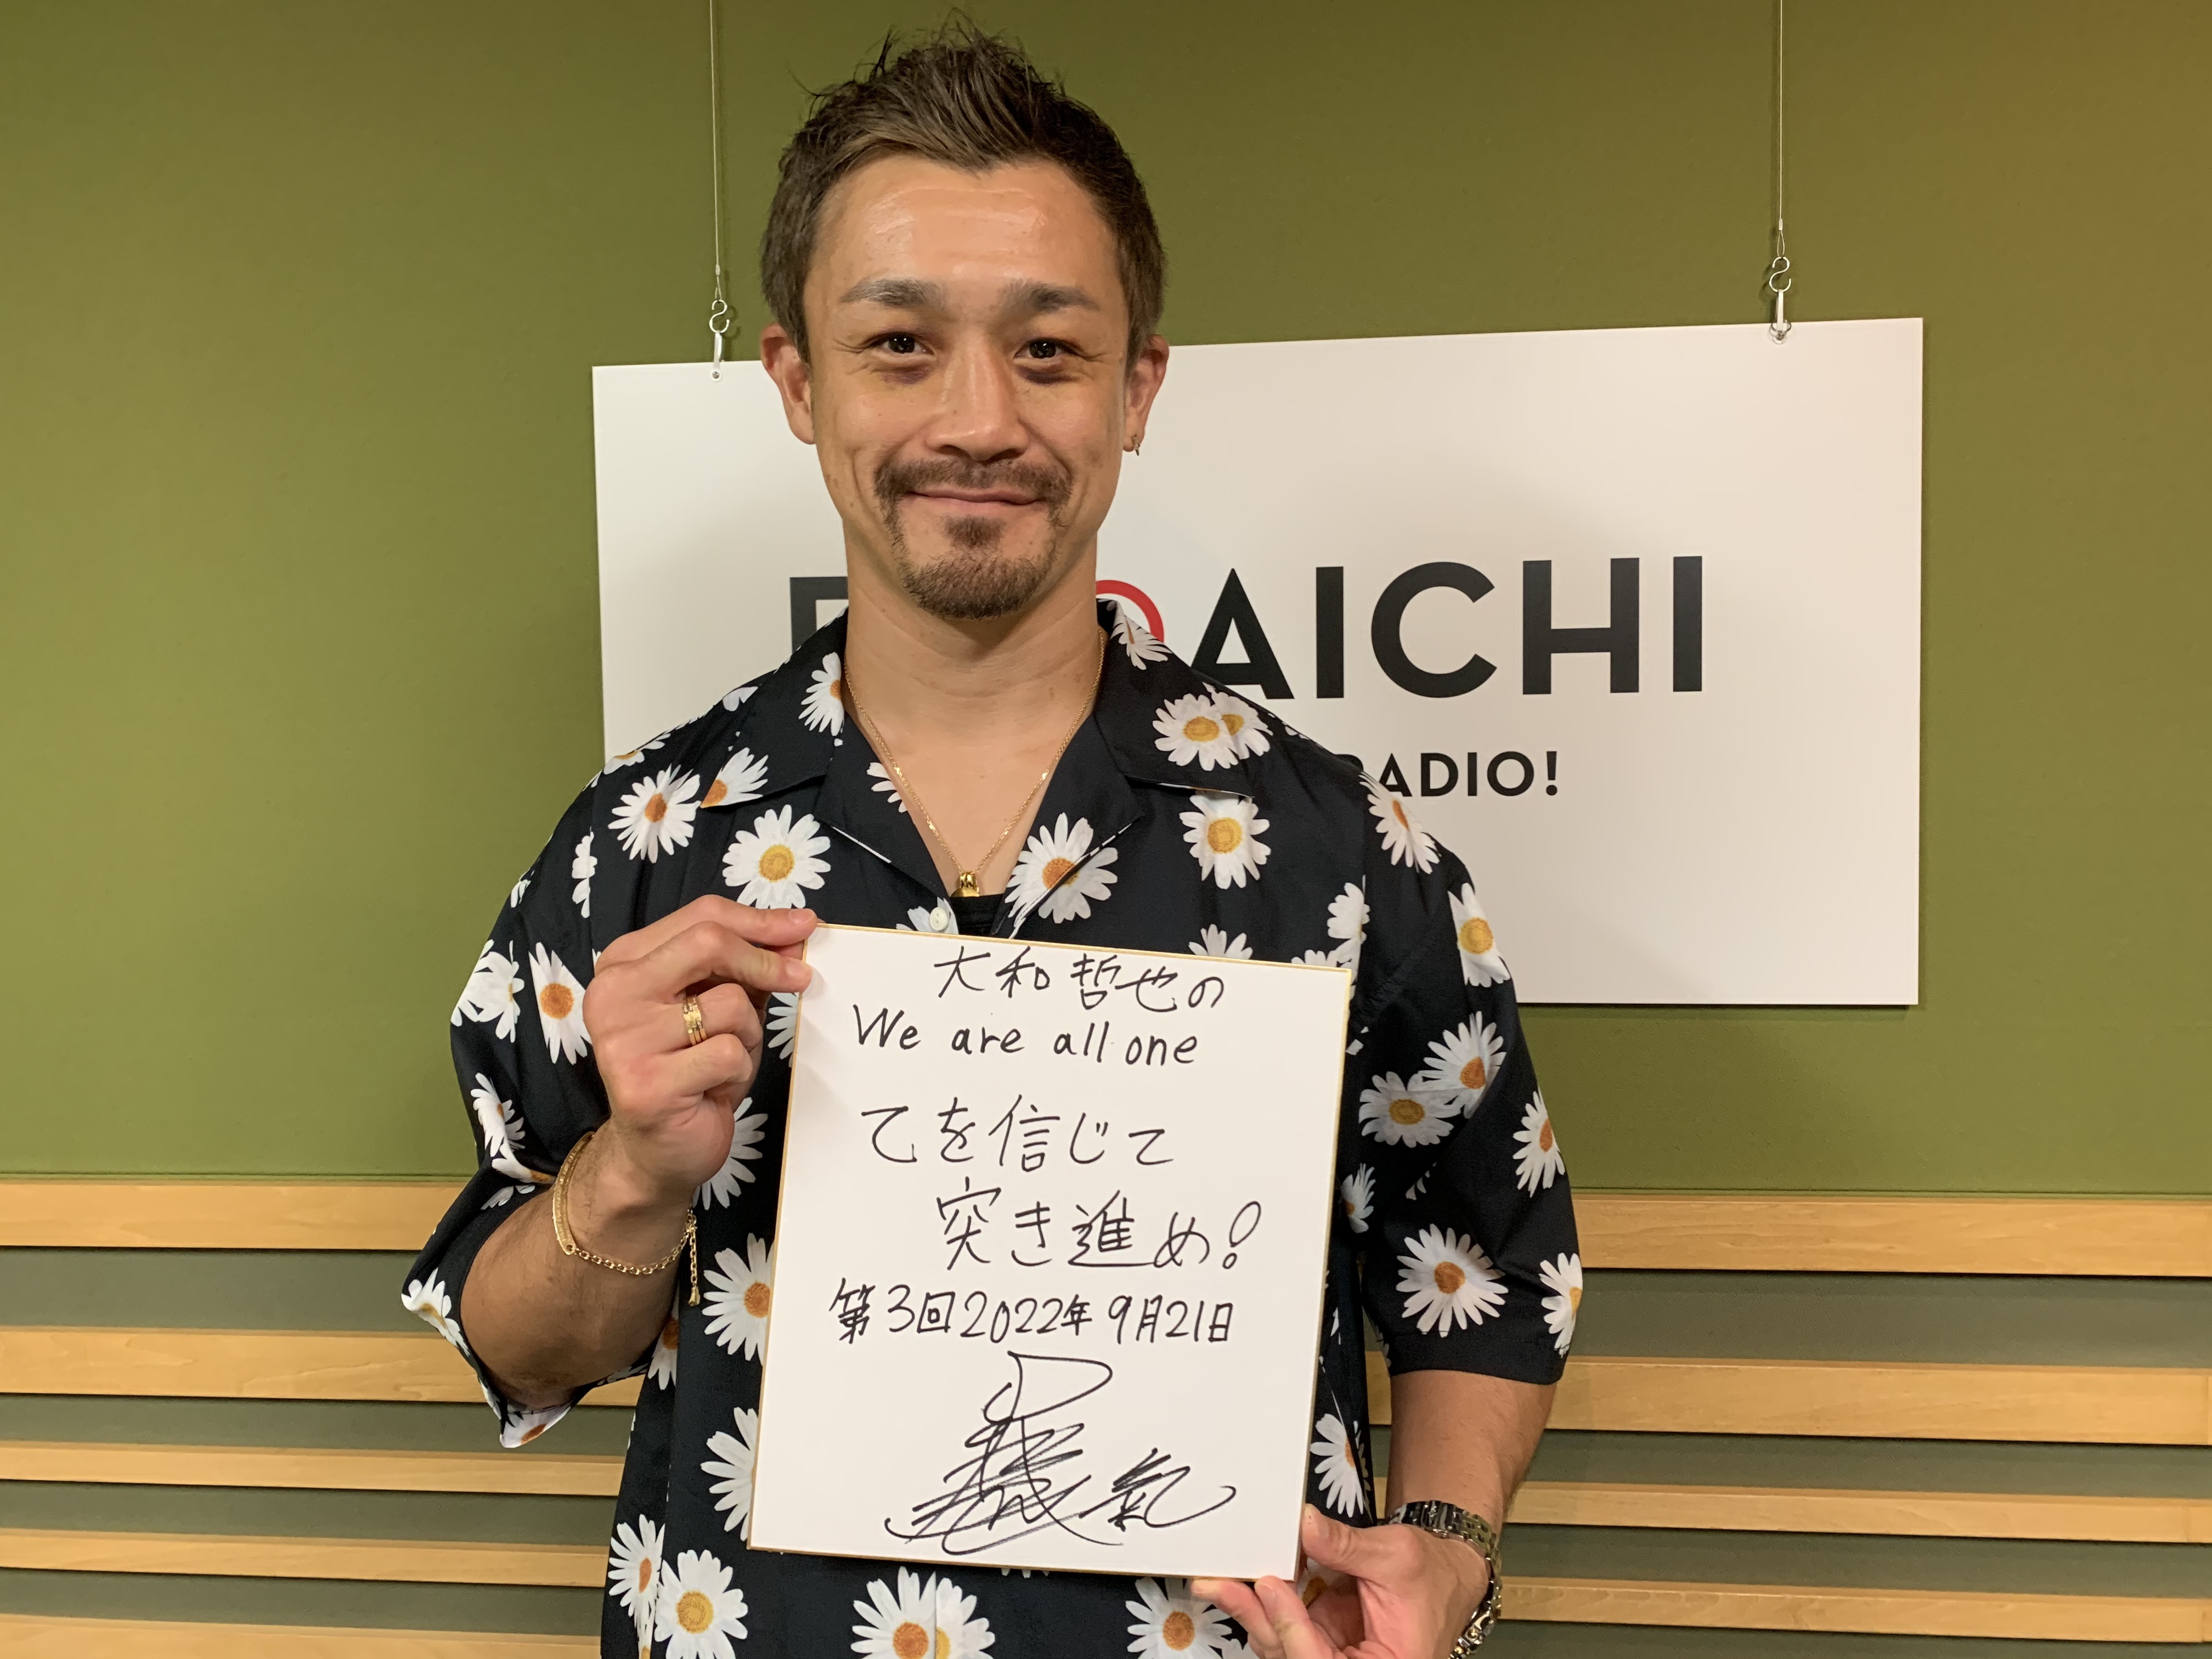 AICHI
RADIO!
大和哲也の
We are all one
てを信じて
突き進め!
第3回2022年9月21日